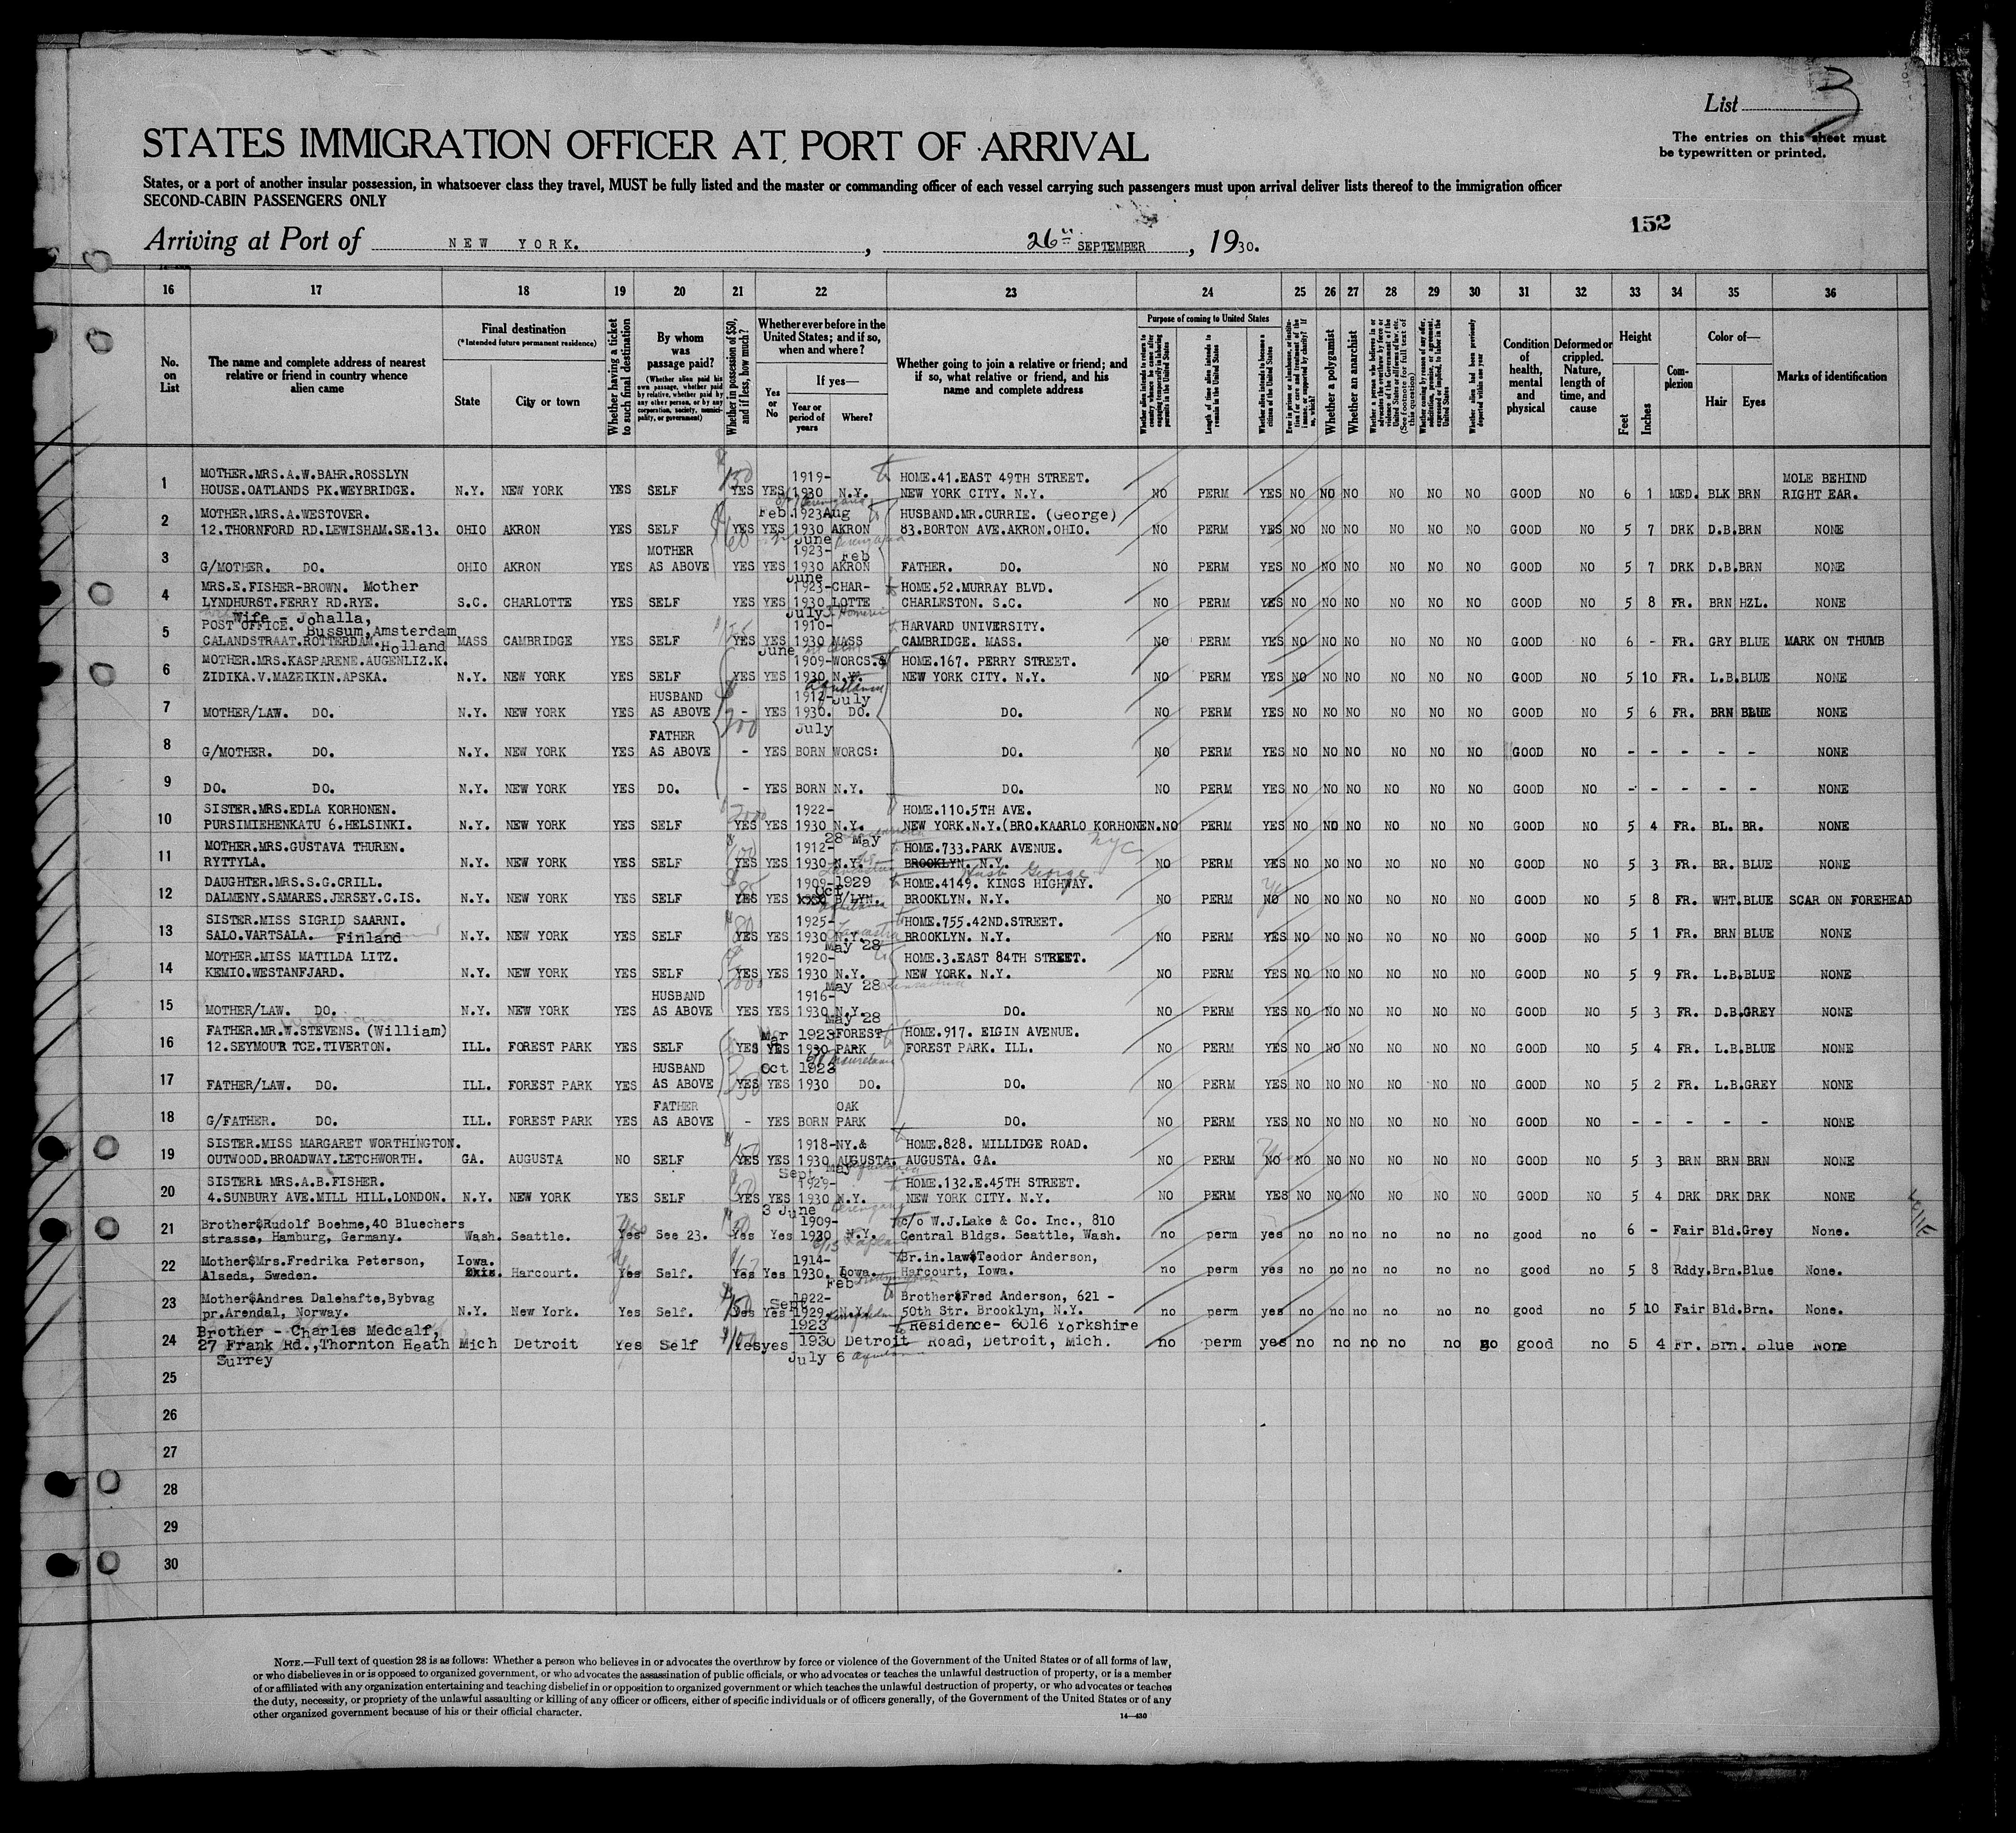 List 3
STATES IMMIGRATION OFFICER AT PORT OF ARRIVAL
The entries on this sheet must
be typewritten or printed.
States, or a port of another insular possession, in whatsoever class they travel, MUST be fully listed and the master or commanding officer of each vessel carrying such passengers must upon arrival deliver lists thereof to the immigration officer
SECOND-CABIN PASSENGERS ONLY
152
Arriving at Port of NEW YORK. , 26 SEPTEMBER , 1930.
16 17 18 19 20 21 22 23 24 25 26 27 28 29 30 31 32 33 34 35 36
No. on List
The name and complete address of nearest relative or friend in country whence alien came
Final destination
(*Intended future permanent residence)
State
City or town
Whether having a ticket to such final destination
By whom was passage paid?
(Whether alien paid his own passage, whether paid by relative, whether paid by any other person, or by any corporation, society, municipality, or government)
Whether in possession of $50, and if less, how much?
Whether ever before in the United States; and if so, when and where?
Yes or No
If yes—
Year or period of years
Where?
Whether going to join a relative or friend; and if so, what relative or friend, and his name and complete address
Purpose of coming to United States
Whether alien intends to return to country whence he came after engaging temporarily in laboring pursuits in the United States
Length of time alien intends to remain in the United States
Whether alien intends to become a citizen of the United States
Ever in prison or almshouse, or institution for care and treatment of the insane, or supported by charity? If so, which?
Whether a polygamist
Whether an anarchist
Whether a person who believes in or advocates the overthrow by force or violence of the Government of the United States or all forms of law, etc. (See footnote for full text of this question)
Whether coming by reason of any offer, solicitation, promise, or agreement, expressed or implied, to labor in the United States
Whether alien had been previously deported within one year
Condition of health, mental and physical
Deformed or crippled. Nature, length of time, and cause
Height
Feet
Inches
Complexion
Color of—
Hair
Eyes
Marks of identification
1 MOTHER.MRS.A.W.BAHR.ROSSLYN 1919- HOME.41.EAST 49TH STREET. MOLE BEHIND
HOUSE.OATLANDS PK.WEYBRIDGE. N.Y. NEW YORK YES SELF YES YES 1930 N.Y. NEW YORK CITY. N.Y. NO PERM YES NO NO NO NO NO NO GOOD NO 6 1 MED. BLK BRN RIGHT EAR.
2 MOTHER.MRS.A.WESTOVER. Feb.1923 Aug HUSBAND.MR.CURRIE. (George)
12.THORNFORD RD.LEWISHAM.SE.13. OHIO AKRON YES SELF YES YES 1930 AKRON 83.BORTON AVE.AKRON.OHIO. NO PERM YES NO NO NO NO NO NO GOOD NO 5 7 DRK D.B.BRN NONE
3 MOTHER June 1923- Feb
G/MOTHER. DO. OHIO AKRON YES AS ABOVE YES YES 1930 AKRON FATHER. DO. NO PERM YES NO NO NO NO NO NO GOOD NO 5 7 DRK D.B.BRN NONE
4 MRS.E.FISHER-BROWN. Mother June 1923-CHAR- HOME.52.MURRAY BLVD.
LYNDHURST.FERRY RD.RYE. S.C. CHARLOTTE YES SELF YES YES 1930 LOTTE CHARLESTON. S.C. NO PERM YES NO NO NO NO NO NO GOOD NO 5 8 FR. BRN HZL. NONE
Wife - Johalla, July
5 POST OFFICE. Bussum, Amsterdam 1910- HARVARD UNIVERSITY.
CALANDSTRAAT.ROTTERDAM. Holland MASS CAMBRIDGE YES SELF YES YES 1930 MASS CAMBRIDGE. MASS. NO PERM YES NO NO NO NO NO NO GOOD NO 6 - FR. GRY BLUE MARK ON THUMB
June
6 MOTHER.MRS.KASPARENE.AUGENLIZ.K. 1909-WORCS.& HOME.167. PERRY STREET.
ZIDIKA.V.MAZEIKIN.APSKA. N.Y. NEW YORK YES SELF YES YES 1930 N.Y. NEW YORK CITY. N.Y. NO PERM YES NO NO NO NO NO NO GOOD NO 5 10 FR. L.B.BLUE NONE
7 HUSBAND 1912- July
MOTHER/LAW. DO. N.Y. NEW YORK YES AS ABOVE - YES 1930. DO. DO. NO PERM YES NO NO NO NO NO NO GOOD NO 5 6 FR. BRN BLUE NONE
July
8 FATHER
G/MOTHER. DO. N.Y. NEW YORK YES AS ABOVE - YES BORN WORCS: DO. NO PERM YES NO NO NO NO NO NO GOOD NO - - - - - NONE
9 DO. DO. N.Y. NEW YORK YES DO. - YES BORN N.Y. DO. NO PERM YES NO NO NO NO NO NO GOOD NO - - - - - NONE
10 SISTER.MRS.EDLA KORHONEN. 1922- HOME.110.5TH AVE.
PURSIMIEHENKATU 6.HELSINKI. N.Y. NEW YORK YES SELF YES YES 1930 N.Y. NEW YORK.N.Y.(BRO.KAARLO KORHONEN.NO PERM YES NO NO NO NO NO NO GOOD NO 5 4 FR. BL. BR. NONE
28 May
11 MOTHER.MRS.GUSTAVA THUREN. 1912- HOME.733.PARK AVENUE. NYC
RYTTYLA. N.Y. NEW YORK YES SELF YES YES 1930 N.Y. BROOKLYN. N.Y. NO PERM YES NO NO NO NO NO NO GOOD NO 5 3 FR. BR. BLUE NONE
George
12 DAUGHTER.MRS.S.G.CRILL. 1909-1929 Oct. HOME.4149. KINGS HIGHWAY.
DALMENY.SAMARES.JERSEY.C.IS. N.Y. NEW YORK YES SELF YES YES B/LYN. BROOKLYN. N.Y. NO PERM NO Yes NO NO NO NO NO NO GOOD NO 5 8 FR. WHT.BLUE SCAR ON FOREHEAD
13 SISTER.MISS SIGRID SAARNI. 1925- HOME.755.42ND.STREET.
SALO.VARTSALA. Finland N.Y. NEW YORK YES SELF YES YES 1930 N.Y. BROOKLYN. N.Y. NO PERM YES NO NO NO NO NO NO GOOD NO 5 1 FR. BRN BLUE NONE
May 28
14 MOTHER.MISS MATILDA LITZ. 1920- HOME.3.EAST 84TH STREET.
KEMIO.WESTANFJARD. N.Y. NEW YORK YES SELF YES YES 1930 N.Y. NEW YORK. N.Y. NO PERM YES NO NO NO NO NO NO GOOD NO 5 9 FR. L.B.BLUE NONE
May 28
15 HUSBAND 1916-
MOTHER/LAW. DO. N.Y. NEW YORK YES AS ABOVE YES YES 1930 N.Y. DO. NO PERM YES NO NO NO NO NO NO GOOD NO 5 3 FR. D.B.GREY NONE
May 28
16 FATHER.MR.W.STEVENS. (William) Mar 1923-FOREST HOME.917. ELGIN AVENUE.
12.SEYMOUR TCE.TIVERTON. ILL. FOREST PARK YES SELF YES YES 1930 PARK FOREST PARK. ILL. NO PERM YES NO NO NO NO NO NO GOOD NO 5 4 FR. L.B.BLUE NONE
17 HUSBAND Oct 1923
FATHER/LAW. DO. ILL. FOREST PARK YES AS ABOVE YES YES 1930 DO. DO. NO PERM YES NO NO NO NO NO NO GOOD NO 5 2 FR. L.B.GREY NONE
18 FATHER OAK
G/FATHER. DO. ILL. FOREST PARK YES AS ABOVE - YES BORN PARK DO. NO PERM YES NO NO NO NO NO NO GOOD NO - - - - - NONE
19 SISTER.MISS MARGARET WORTHINGTON. 1918-NY.& HOME.828. MILLIDGE ROAD.
OUTWOOD.BROADWAY.LETCHWORTH. GA. AUGUSTA NO SELF YES YES 1930 AUGUSTA. AUGUSTA. GA. NO PERM NO Yes NO NO NO NO NO NO GOOD NO 5 3 BRN BRN BRN NONE
Sept May
20 SISTER: MRS.A.B.FISHER. 1929- HOME.132.E.45TH STREET.
4.SUNBURY AVE.MILL HILL.LONDON. N.Y. NEW YORK YES SELF YES YES 1930 N.Y. NEW YORK CITY. N.Y. NO PERM YES NO NO NO NO NO NO GOOD NO 5 4 DRK DRK DRK NONE
3 June
21 Brother$Rudolf Boehme,40 Bluechers 1909- c/o W.J.Lake & Co. Inc., 810
strasse, Hamburg, Germany. Wash. Seattle. Yes See 23. Yes Yes 1930 N.Y. Central Bldgs. Seattle, Wash. no perm yes no no no no no no good no 6 - Fair Bld.Grey None.
22 Mother$Mrs.Fredrika Peterson, Iowa. 1914- Br.in.law$Teodor Anderson,
Alseda, Sweden. Harcourt. Yes Self. Yes Yes 1930. Iowa. Harcourt, Iowa. no perm yes no no no no no no good no 5 8 Rddy.Brn.Blue None.
Feb
23 Mother$Andrea Dalehafte,Bybvag Sept 1922- Brother$Fred Anderson, 621 -
pr.Arendal, Norway. N.Y. New York. Yes Self. Yes Yes 1929. N.Y. 50th Str. Brooklyn, N.Y. no perm yes no no no no no no good no 5 10 Fair Bld.Brn. None.
24 Brother - Charles Medcalf, 1923 Residence- 6016 Yorkshire
27 Frank Rd.,Thornton Heath Mich Detroit Yes Self Yes yes 1930 Detroit Road, Detroit, Mich. no perm yes no no no no no no good no 5 4 Fr. Brn. Blue None
Surrey July 6
25
26
27
28
29
30
NOTE.—Full text of question 28 is as follows: Whether a person who believes in or advocates the overthrow by force or violence of the Government of the United States or of all forms of law,
or who disbelieves in or is opposed to organized government, or who advocates the assassination of public officials, or who advocates or teaches the unlawful destruction of property, or is a member
of or affiliated with any organization entertaining and teaching disbelief in or opposition to organized government or which teaches the unlawful destruction of property, or who advocates or teaches
the duty, necessity, or propriety of the unlawful assaulting or killing of any officer or officers, either of specific individuals or of officers generally, of the Government of the United States or of any
other organized government because of his or their official character.
14—430